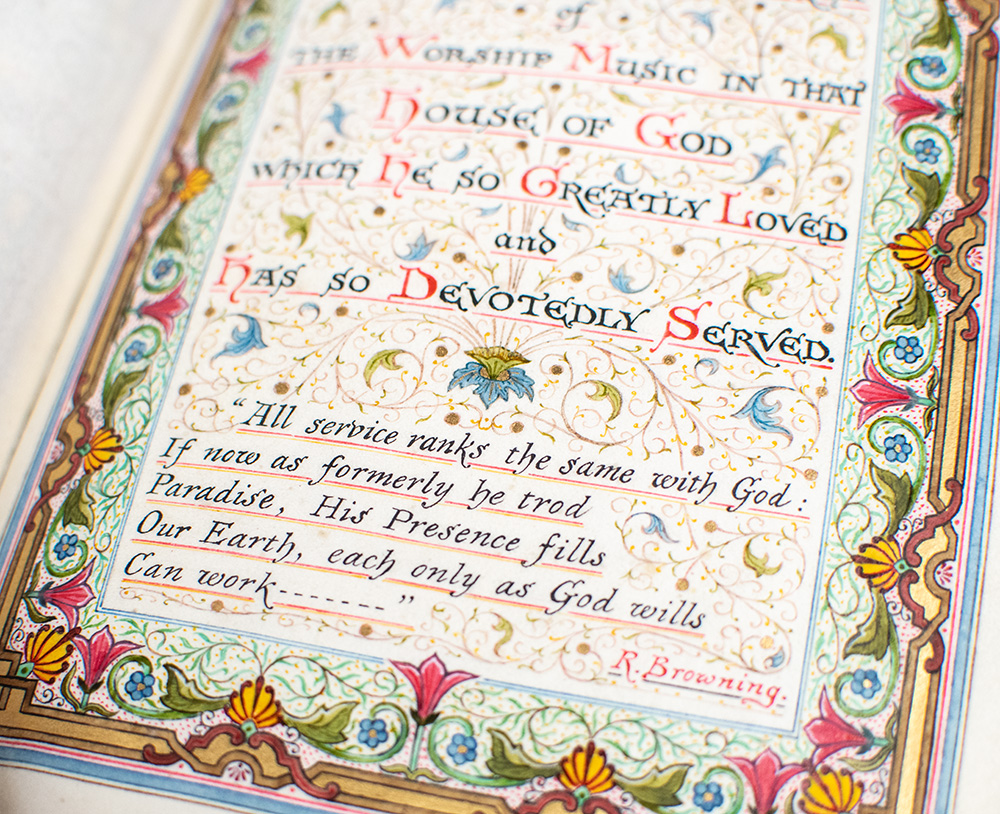 of
THE WORSHIP MUSIC IN THAT
HOUSE OF GOD
WHICH HE SO GREATLY LOVED
and
HAS SO DEVOTEDLY SERVED.
“All service ranks the same with God:
If now as formerly he trod
Paradise, His Presence fills
Our Earth, each only as God wills
Can work-------”
R. Browning.